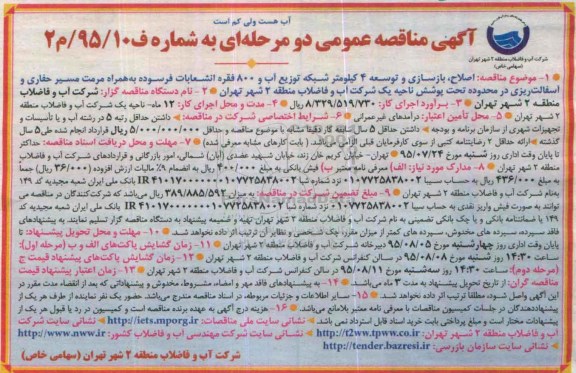 آب هست ولی کم است
آگهی مناقصه عمومی دو مرحله‌ای به شماره ف۹۵/۱۰/م۲
شرکت آب و فاضلاب منطقه ۲ شهر تهران
(سهامی خاص)
۱- موضوع مناقصه: اصلاح، بازسازی و توسعه ۴ کیلومتر شبکه توزیع آب و ۸۰۰ فقره انشعابات فرسوده به‌همراه مرمت مسیر حفاری و
آسفالت‌ریزی در محدوده تحت پوشش ناحیه یک شرکت آب و فاضلاب منطقه ۲ شهر تهران ۲- نام دستگاه مناقصه گزار: شرکت آب و فاضلاب
منطقه ۲ شهر تهران ۳- برآورد اجرای کار: ۸/۳۲۹/۵۱۹/۷۳۰ ریال ۴- مدت و محل اجرای کار: ۱۲ ماه- ناحیه یک شرکت آب و فاضلاب منطقه
۲ شهر تهران ۵- محل تأمین اعتبار: درآمدهای غیرعمرانی ۶- شرایط اختصاصی شرکت در مناقصه: داشتن حداقل رتبه ۵ در رشته آب و یا تأسیسات و
تجهیزات شهری از سازمان برنامه و بودجه داشتن حداقل ۵ سال سابقه کار دقیقا مشابه با موضوع مناقصه و حداقل ۵/۰۰۰/۰۰۰/۰۰۰ ریال قرارداد انجام شده طی ۵ سال
گذشته ارائه حداقل ۲ رضایتنامه کتبی از سوی کارفرمایان قبلی الزامی می‌باشد. (بابت کارهای مشابه معرفی شده) ۷- مهلت و محل دریافت اسناد مناقصه: حداکثر
تا پایان وقت اداری روز شنبه مورخ ۹۵/۰۷/۲۴ تهران- خیابان کریم خان زند، خیابان شهید عضدی (آبان) شمالی، امور بازرگانی و قراردادهای شرکت آب و فاضلاب
منطقه ۲ شهر تهران ۸- مدارک مورد نیاز: الف) معرفی نامه معتبر ب) فیش بانکی به مبلغ ۴۰۰/۰۰۰ ریال به انضمام ۹٪ مالیات ارزش افزوده (۳۶/۰۰۰ ریال) جمعاً
به مبلغ ۴۳۶/۰۰۰ ریال به حساب سیبا ۰۱۰۷۷۲۵۸۳۸۰۰۲
به‌نام شرکت آب و فاضلاب منطقه ۲ شهر تهران ۹- مبلغ تضمین شرکت در مناقصه: به میزان ۳۸۹/۸۸۵/۵۹۲ ریال می‌باشد که شرکت‌کنندگان در مناقصه می
توانند به صورت فیش واریز نقدی به حساب سیبا
۱۴۹ یا ضمانتنامه بانکی و یا چک بانکی تضمینی به نام شرکت آب و فاضلاب منطقه ۲ شهر تهران تهیه و ضمیمه پیشنهاد به دستگاه مناقصه گزار تسلیم نمایند. به پیشنهادهای
فاقد سپرده، سپرده‌های مخدوش، سپرده‌های کمتر از میزان مقرر، چک شخصی و نظایر آن ترتیب اثر داده نخواهد شد. ۱۰- مهلت و محل تحویل پیشنهادات: تا
پایان وقت اداری روز چهارشنبه مورخ ۹۵/۰۸/۰۵ دبیرخانه شرکت آب و فاضلاب منطقه ۲ شهر تهران ۱۱- زمان گشایش پاکت‌های الف و ب (مرحله اول):
ساعت ۱۴:۳۰ روز شنبه مورخ ۹۵/۰۸/۰۸ در سالن کنفرانس شرکت آب و فاضلاب منطقه ۲ شهر تهران ۱۲- زمان گشایش پاکت‌های پیشنهاد قیمت ج
(مرحله دوم): ساعت ۱۴:۳۰ روز سه‌شنبه مورخ ۹۵/۰۸/۱۱ در سالن کنفرانس شرکت آب و فاضلاب منطقه ۲ شهر تهران ۱۳- زمان اعتبار پیشنهاد قیمت
مناقصه گران: از تاریخ تحویل پیشنهاد به مدت ۳ ماه می‌باشد. ۱۴- به پیشنهادهای فاقد مهر و امضاء، مشروط، مخدوش و پیشنهاداتی که بعد از انقضاء مدت مقرر در
این آگهی واصل شود، مطلقا ترتیب اثر داده نخواهد شد. ۱۵- سایر اطلاعات و جزئیات مربوطه، در اسناد مناقصه مندرج می‌باشد. حضور یک نفر نماینده از طرف هر یک از
پیشنهاددهندگان در جلسات کمیسیون مناقصات با معرفی نامه معتبر بلامانع می‌باشد. ۱۶- هزینه درج آگهی به عهده برنده مناقصه است و کمیسیون در رد یا قبول هر یک از
پیشنهادات مختار است و مبلغ پرداختی بابت خرید اسناد قابل استرداد نمی باشد. نشانی سایت ملی مناقصات: http://iets.mporg.ir نشانی سایت شرکت
آب و فاضلاب منطقه ۲ شهر تهران: http://t2ww.tpww.co.ir نشانی سایت شرکت مهندسی آب و فاضلاب کشور: http://www.nww.ir
نشانی سایت سازمان بازرسی: http://tender.bazresi.ir
شرکت آب و فاضلاب منطقه ۲ شهر تهران (سهامی خاص)